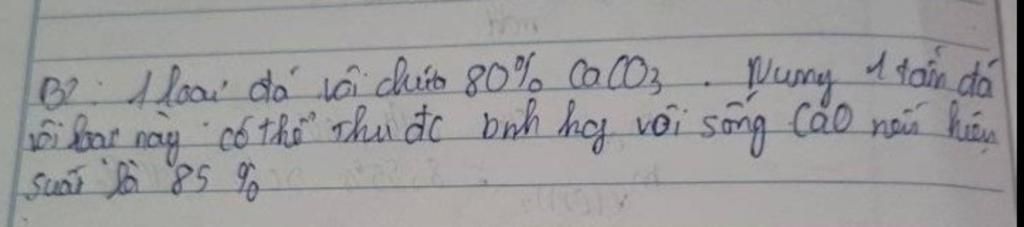 B2: 1 loại đá vôi chứa 80% CaCO3. Nung 1 tấn đá
vôi loại này có thể thu đc bnh kg vôi sống CaO nếu hiệu
suất là 85 %